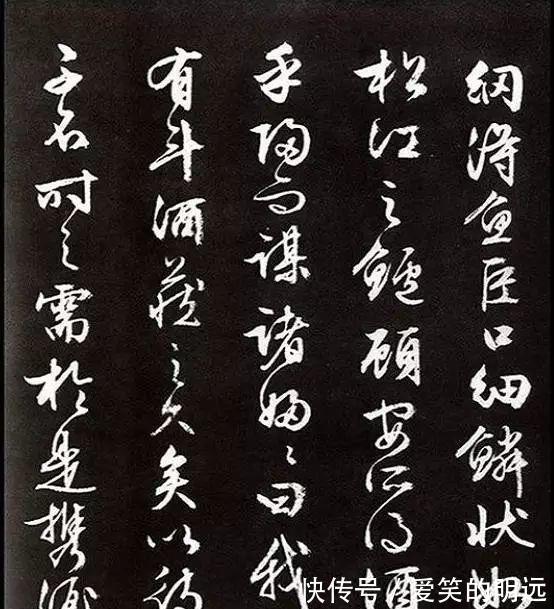 網得魚巨口細鱗狀如
松江之鱸顧安所得酒
乎歸而謀諸婦々曰我
有斗酒藏之久矣以待
子不時之需於是攜酒
快传号 / 爱笑的明远